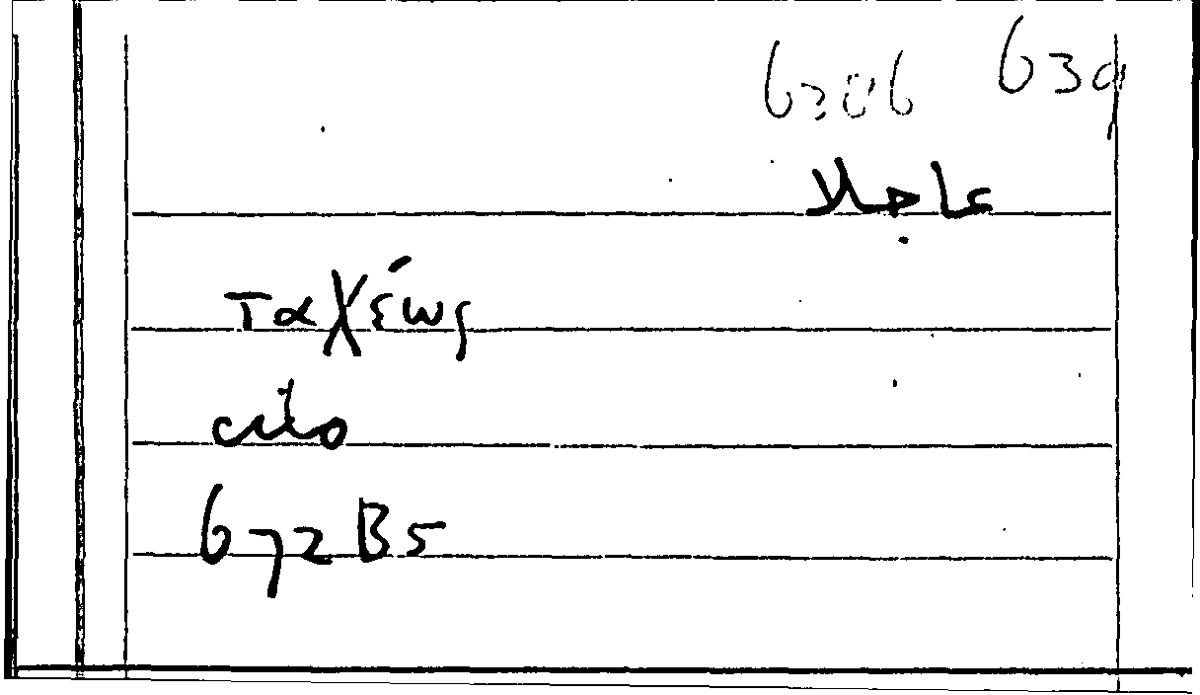 639
عاجلا
ταχέως
cito
672B5